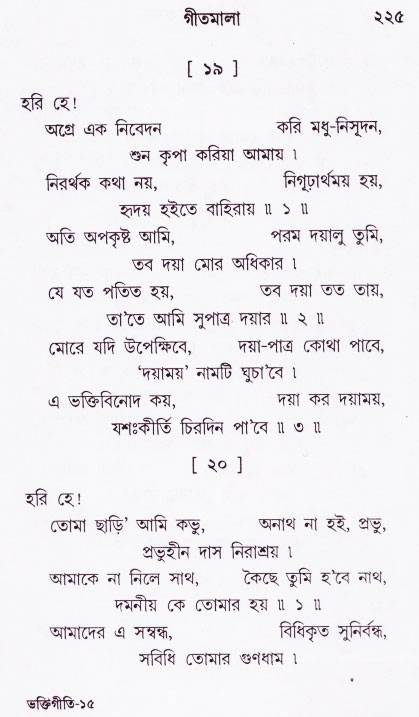 গীতমালা ২২৫
[ ১৯ ]
হরি হে!
অগ্রে এক নিবেদন করি মধু-নিসূদন,
শুন কৃপা করিয়া আমায় ।
নিরর্থক কথা নয়, নিগূঢ়ার্থময় হয়,
হৃদয় হইতে বাহিরায় ॥ ১ ॥
অতি অপকৃষ্ট আমি, পরম দয়ালু তুমি,
তব দয়া মোর অধিকার ।
যে যত পতিত হয়, তব দয়া তত তায়,
তা'তে আমি সুপাত্র দয়ার ॥ ২ ॥
মোরে যদি উপেক্ষিবে, দয়া-পাত্র কোথা পাবে,
'দয়াময়' নামটি ঘুচা'বে ।
এ ভক্তিবিনোদ কয়, দয়া কর দয়াময়,
যশঃকীর্তি চিরদিন পা'বে ॥ ৩ ॥
[ ২০ ]
হরি হে!
তোমা ছাড়ি' আমি কভু, অনাথ না হই, প্রভু,
প্রভুহীন দাস নিরাশ্রয় ।
আমাকে না নিলে সাথ, কৈছে তুমি হ'বে নাথ,
দমনীয় কে তোমার হয় ॥ ১ ॥
আমাদের এ সম্বন্ধ, বিধিকৃত সুনির্বন্ধ,
সবিধি তোমার গুণধাম ।
ভক্তিগীতি-১৫